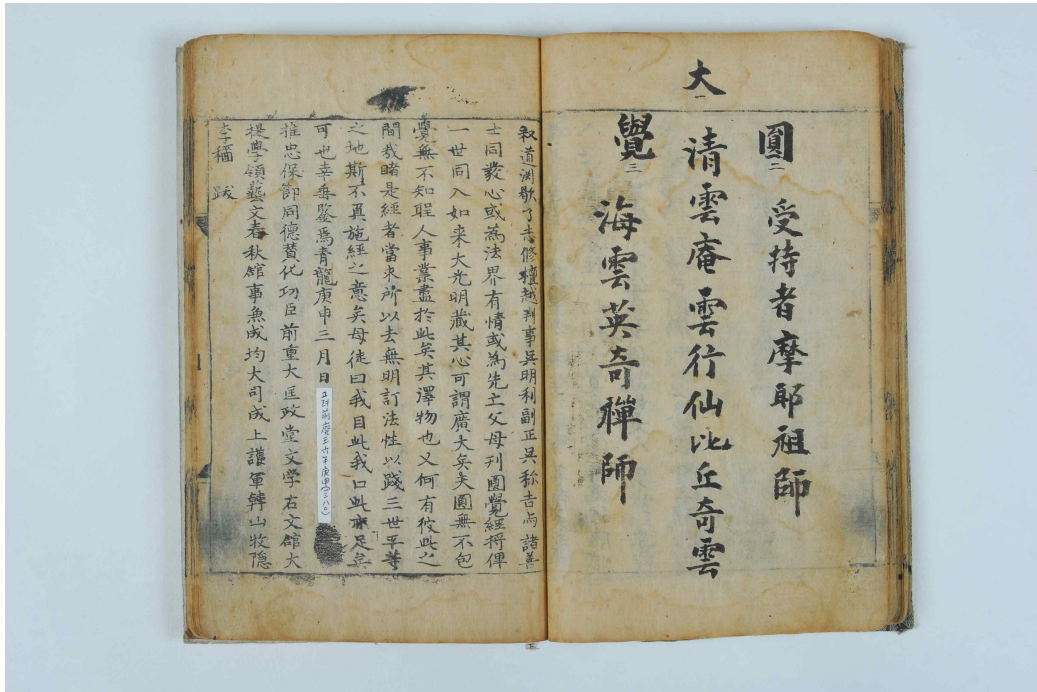 圓二 受持者摩耶祖師
大一
清雲庵雲行仙比丘奇雲
覺三 海雲英奇禪師
道淵歇了志修檀越判事吳明利副正吳称吉与諸善
士同發心或為法界有情或為先亡父母刋圓覺經將俾
一世同入如来大光明藏其心可謂廣大矣夫圓無不包
覺無不知聖人事業盡於此矣其澤物也又何有彼此之
間哉睹是經者當求所以去無明訂法性以踐三世平等
之地斯不負施經之意矣母徒曰我目此我口此亦足矣
可也幸垂鍳焉青龍庚申三月日
推忠保節同德賛化功臣前重大匡政堂文學右文舘大
提學領藝文春秋舘事兼成均大司成上護軍韓山牧隐
李穡 跋